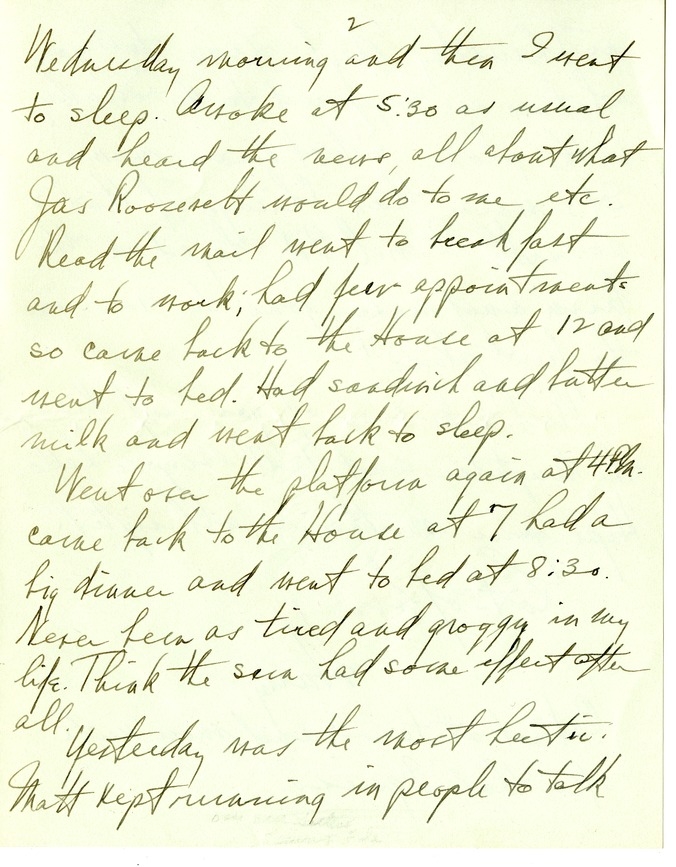 2
Wednesday morning and then I went
to sleep. Awoke at 5:30 as usual
and heard the news, all about what
Jas Roosevelt would do to me etc.
Read the mail went to breakfast
and to work; had few appointments
so came back to the House at 12 and
went to bed. Had sandwich and butter
milk and went back to sleep.
Went over the platform again at 4 P.M.
came back to the House at 7 had a
big dinner and went to bed at 8:30.
Never been as tired and groggy in my
life. Think the sun had some effect after
all.
Yesterday was the most hectic.
Matt kept running in people to talk